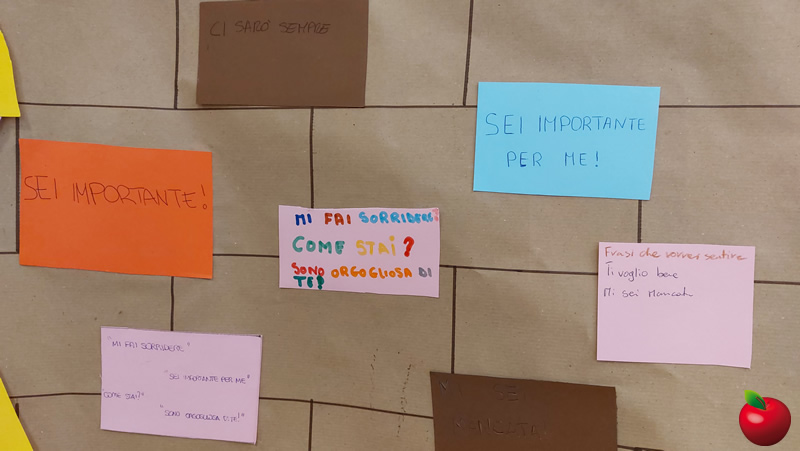 CI SARÒ SEMPRE
SEI IMPORTANTE
PER ME!
SEI IMPORTANTE!
MI FAI SORRIDERE!
COME STAI?
SONO ORGOGLIOSA DI
TE!
Frasi che vorrei sentire
Ti voglio bene
Mi sei mancata
"MI FAI SORRIDERE"
"SEI IMPORTANTE PER ME"
COME STAI?"
"SONO ORGOGLIOSA DI TE!"
SEI
MANCATA